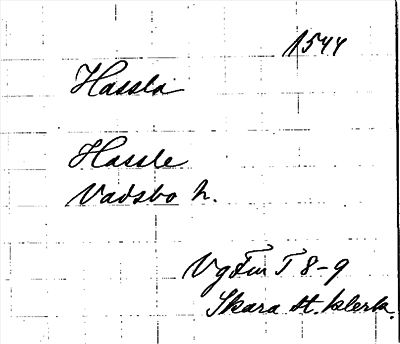 1544
Hassla
Hassle
Vadsbo h.
Vg Fm T 8-9
Skara st. klerk.